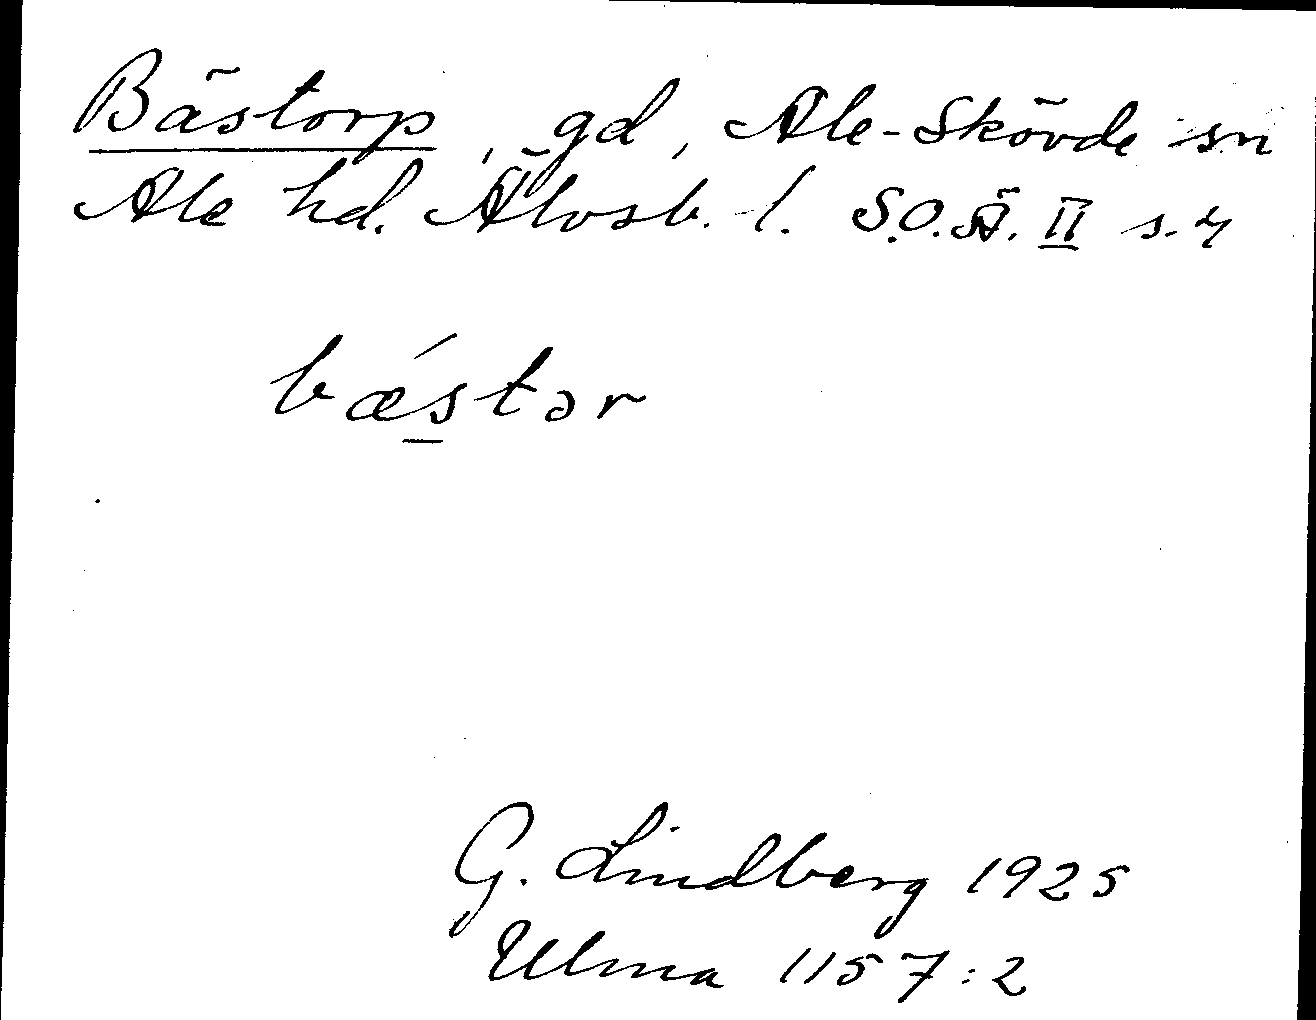 Bästorp, gd, Ale-Skövde sn
Ale hd. Älvsb. l. S.O.Ä. II s. 4
bæ´stər
G. Lindberg 1925
Ulma 1157:2